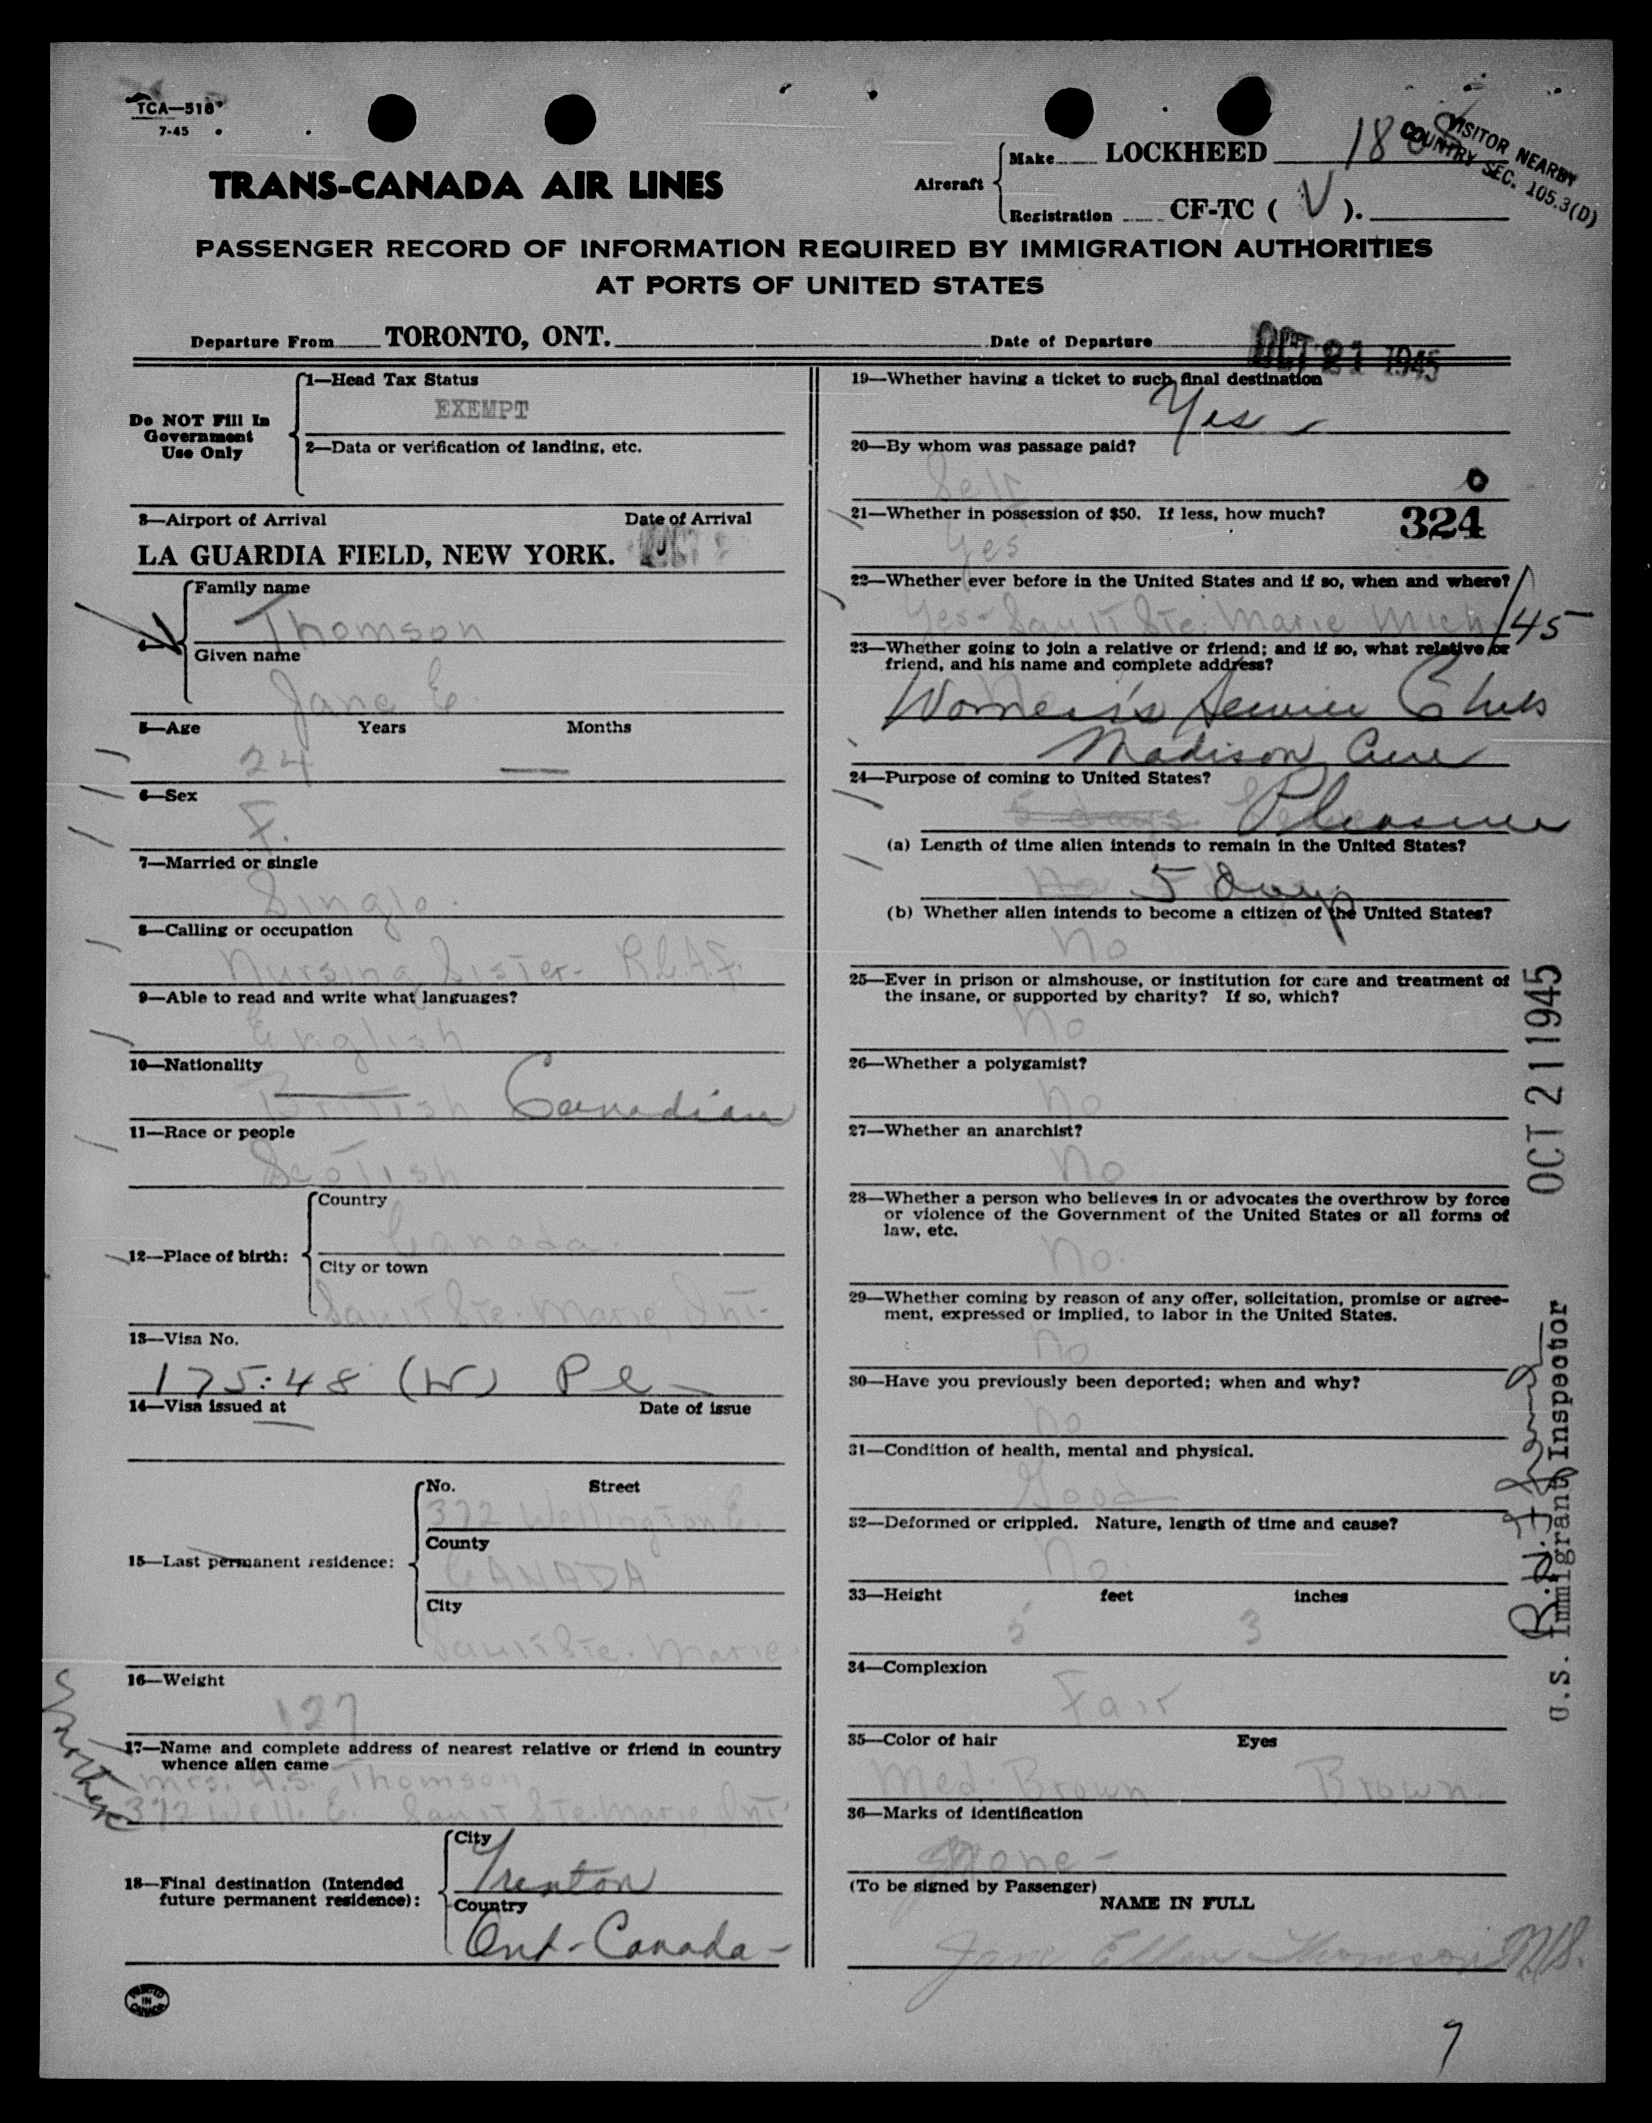 TCA—518
7-45
TRANS-CANADA AIR LINES
Aircraft
Make LOCKHEED 18
Registration CF-TC ( V ).
VISITOR NEARBY
COUNTRY SEC. 105.3(D)
PASSENGER RECORD OF INFORMATION REQUIRED BY IMMIGRATION AUTHORITIES
AT PORTS OF UNITED STATES
Departure From TORONTO, ONT. Date of Departure OCT 21 1945
Do NOT Fill In
Government
Use Only
1—Head Tax Status
EXEMPT
2—Data or verification of landing, etc.
3—Airport of Arrival Date of Arrival
LA GUARDIA FIELD, NEW YORK. OCT
4—
Family name
Thomson
Given name
Jane E.
5—Age Years Months
24 —
6—Sex
F.
7—Married or single
Single.
8—Calling or occupation
Nursing Sister - R.C.A.F.
9—Able to read and write what languages?
English
10—Nationality
British Canadian
11—Race or people
Scotish
12—Place of birth:
Country
Canada.
City or town
Sault Ste. Marie, Ont.
13—Visa No.
175:48 (W) Pl
14—Visa issued at Date of issue
15—Last permanent residence:
No. Street
372 Wellington E.
County
CANADA
City
Sault Ste. Marie
16—Weight
127
17—Name and complete address of nearest relative or friend in country
whence alien came
Mrs. A.S. Thomson
372 Well. E. Sault Ste. Marie, Ont.
mother
18—Final destination (Intended
future permanent residence):
City
Trenton
Country
Ont - Canada -
PRINTED
IN
CANADA
19—Whether having a ticket to such final destination
Yes -
20—By whom was passage paid?
Self
0
21—Whether in possession of $50. If less, how much?
324
Yes
22—Whether ever before in the United States and if so, when and where?
Yes - Sault Ste. Marie Mich /45
23—Whether going to join a relative or friend; and if so, what relative or
friend, and his name and complete address?
No
Women's Service Club
Madison Ave
24—Purpose of coming to United States?
5 days Pleasure
(a) Length of time alien intends to remain in the United States?
No 5 Days
(b) Whether alien intends to become a citizen of the United States?
No
25—Ever in prison or almshouse, or institution for care and treatment of
the insane, or supported by charity? If so, which?
No
26—Whether a polygamist?
No
27—Whether an anarchist?
No
28—Whether a person who believes in or advocates the overthrow by force
or violence of the Government of the United States or all forms of
law, etc.
No.
29—Whether coming by reason of any offer, solicitation, promise or agree-
ment, expressed or implied, to labor in the United States.
No
30—Have you previously been deported; when and why?
No
31—Condition of health, mental and physical.
Good
32—Deformed or crippled. Nature, length of time and cause?
No.
33—Height feet inches
5 3
34—Complexion
Fair
35—Color of hair Eyes
Med. Brown Brown
36—Marks of identification
None -
(To be signed by Passenger)
NAME IN FULL
Jane Ellen Thomson N/S.
OCT 21 1945
U.S. Immigrant Inspector
7